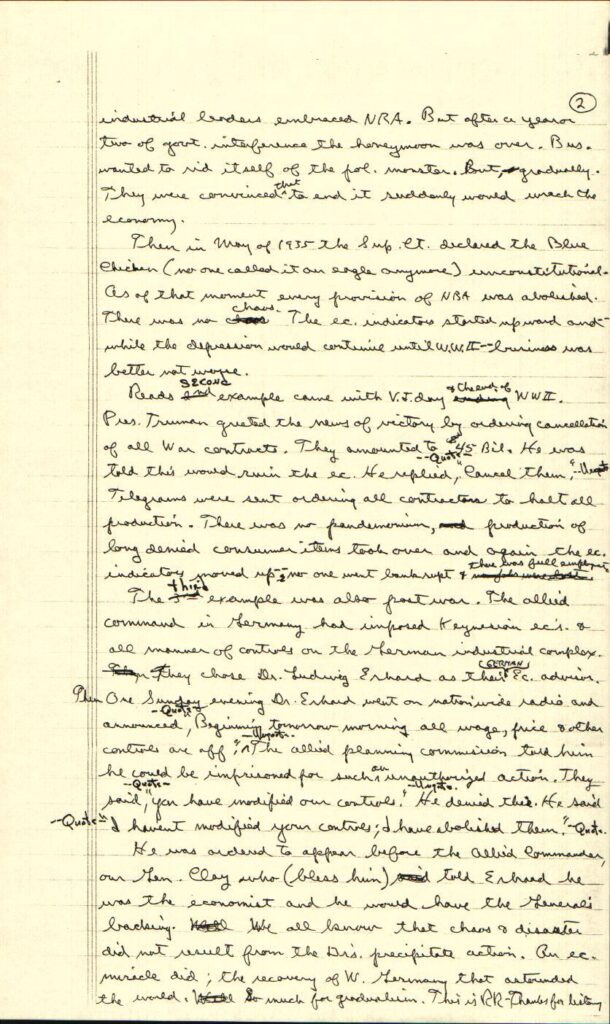 2
industrial leaders embraced NRA. But after a year or
two of govt. interference the honeymoon was over. Bus.
wanted to rid itself of the pol. monster. But, gradually.
They were convinced that to end it suddenly would wrack the
economy.
Then in May of 1935 the Sup. Ct. declared the Blue
Chicken (no one called it an eagle anymore) unconstitutional.
As of that moment every provision of NRA was abolished.
There was no chaos. The ec. indicators started upward and –
while the depression would continue until W.W.II – business was
better not worse.
Reads SECOND example came with V.J. day & the end of WWII.
Pres. Truman greeted the news of victory by ordering cancellation
of all War contracts. They amounted to $45 Bil. He was
told this would ruin the ec. He replied, --Quote-- "Cancel them," --Unquote
Telegrams were sent ordering all contractors to halt all
production. There was no pandemonium, production of
long denied consumer items took over and again the ec.
indicators moved up – no one went bankrupt & there was full employment
The third example was also post war. The allied
command in Germany had imposed Keynesian ec's. &
all manner of controls on the German industrial complex.
They chose Dr. Ludwig Erhard as their GERMAN Ec. advisor.
Then One Sunday evening Dr. Erhard went on nationwide radio and
announced, --Quote-- "Beginning tomorrow morning all wage, price & other
controls are off". --Unquote-- The allied planning commission told him
he could be imprisoned for such an unauthorized action. They
said, --Quote-- "you have modified our controls." --Unquote-- He denied this. He said
--Quote-- "I havent modified your controls; I have abolished them." --Quote--
He was ordered to appear before the Allied Commander,
our Gen. Clay who (bless him) told Erhard he
was the economist and he would have the General's
backing. We all know that chaos & disaster
did not result from the Dr's. precipitate action. An ec.
miracle did; the recovery of W. Germany that astounded
the world. So much for gradualism. This is RR – Thanks for listening